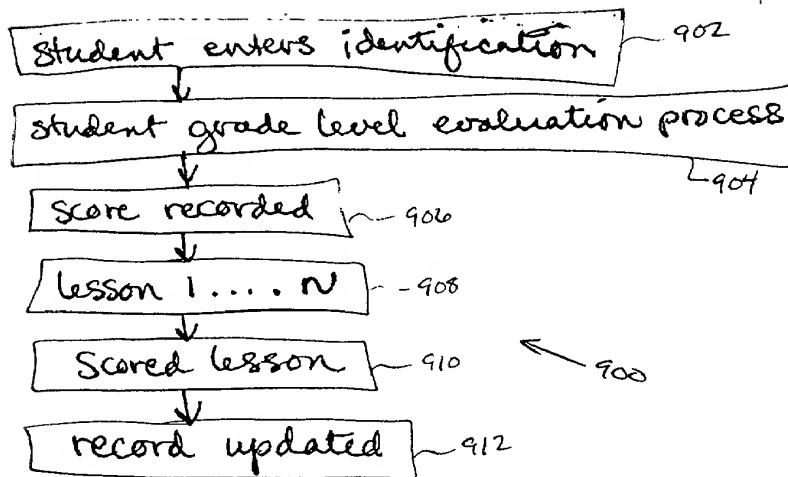 student enters identification 902
student grade level evaluation process
904
score recorded 906
lesson 1 .... N 908
Scored lesson 910
900
record updated 912